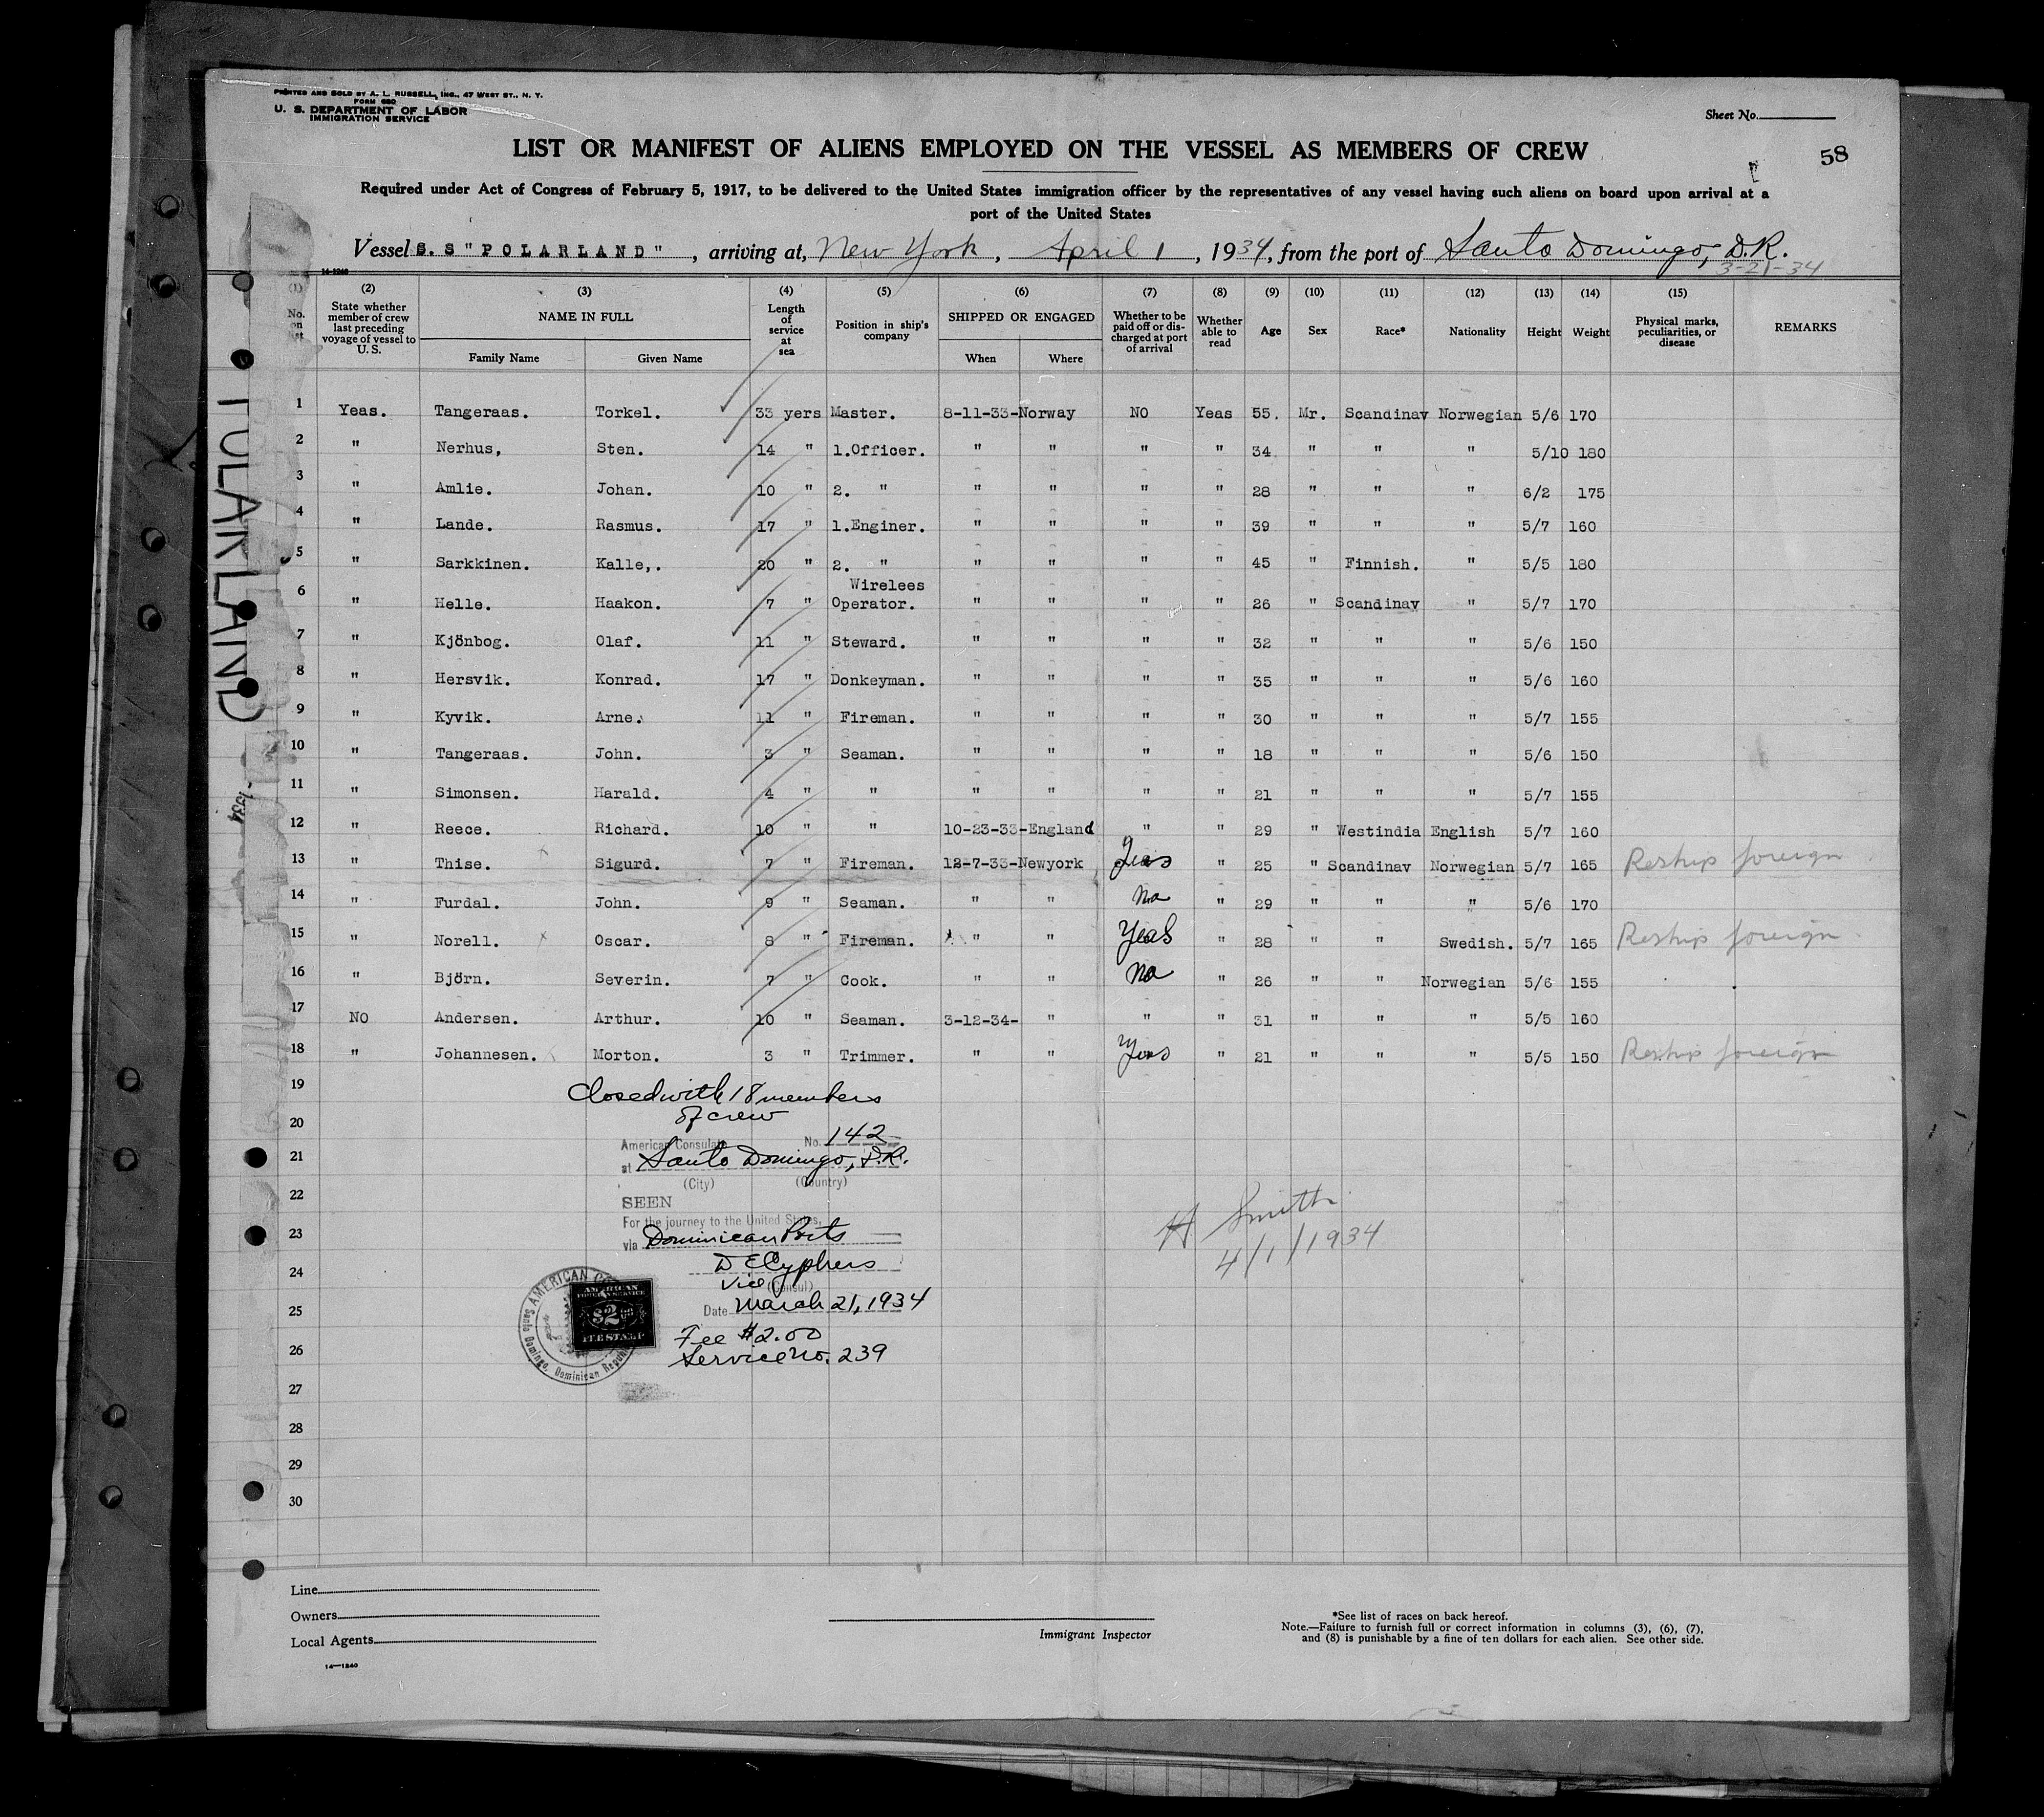 PRINTED AND SOLD BY A. L. RUSSELL, INC., 47 WEST ST., N. Y.
FORM 680
U. S. DEPARTMENT OF LABOR
IMMIGRATION SERVICE
Sheet No.
58
LIST OR MANIFEST OF ALIENS EMPLOYED ON THE VESSEL AS MEMBERS OF CREW
Required under Act of Congress of February 5, 1917, to be delivered to the United States immigration officer by the representatives of any vessel having such aliens on board upon arrival at a
port of the United States
Vessel S.S "POLARLAND", arriving at, New York, April 1, 1934, from the port of Santo Domingo, D.R.
3-21-34
14-1240
(1) No. on list (2) State whether member of crew last preceding voyage of vessel to U. S. (3) NAME IN FULL Family Name Given Name (4) Length of service at sea (5) Position in ship's company (6) SHIPPED OR ENGAGED When Where (7) Whether to be paid off or discharged at port of arrival (8) Whether able to read (9) Age (10) Sex (11) Race* (12) Nationality (13) Height (14) Weight (15) Physical marks, peculiarities, or disease REMARKS
1 Yeas. Tangeraas. Torkel. 33 yers Master. 8-11-33-Norway NO Yeas 55. Mr. Scandinav Norwegian 5/6 170
2 " Nerhus, Sten. 14 " 1.Officer. " " " " 34 " " " 5/10 180
3 " Amlie. Johan. 10 " 2. " " " " " 28 " " " 6/2 175
4 " Lande. Rasmus. 17 " 1.Enginer. " " " " 39 " " " 5/7 160
5 " Sarkkinen. Kalle,. 20 " 2. " " " " " 45 " Finnish. " 5/5 180
6 " Helle. Haakon. 7 " Wirelees Operator. " " " " 26 " Scandinav " 5/7 170
7 " Kjönbog. Olaf. 11 " Steward. " " " " 32 " " " 5/6 150
8 " Hersvik. Konrad. 17 " Donkeyman. " " " " 35 " " " 5/6 160
9 " Kyvik. Arne. 11 " Fireman. " " " " 30 " " " 5/7 155
10 " Tangeraas. John. 3 " Seaman. " " " " 18 " " " 5/6 150
11 " Simonsen. Harald. 4 " " " " " " 21 " " " 5/7 155
12 " Reece. Richard. 10 " " 10-23-33-England " " 29 " Westindia English 5/7 160
13 " Thise. x Sigurd. 7 " Fireman. 12-7-33-Newyork Yeas " 25 " Scandinav Norwegian 5/7 165 Reship foreign
14 " Furdal. John. 9 " Seaman. " " No " 29 " " " 5/6 170
15 " Norell. x Oscar. 8 " Fireman. " " Yeas " 28 " " Swedish. 5/7 165 Reship foreign
16 " Björn. Severin. 7 " Cook. " " No " 26 " " Norwegian 5/6 155
17 NO Andersen. Arthur. 10 " Seaman. 3-12-34- " " " 31 " " " 5/5 160
18 " Johannesen. x Morton. 3 " Trimmer. " " Yeas " 21 " " " 5/5 150 Reship foreign
19
Closed with 18 members
of crew
20
American Consulate No. 142
21
at Santo Domingo, D.R.
(City) (Country)
22
SEEN
For the journey to the United States,
23
via Dominican Ports
24
D E Cyphers
Vice (Consul)
25
Date March 21, 1934
Fee $2.00
26
Service No. 239
27
28
29
30
H Smith
4/1/1934
AMERICAN
FOREIGN SERVICE
$2.00
FEE STAMP
AMERICAN CO
Santo Domingo, Dominican Republic
POLARLAND
-1934
Line
Owners
Local Agents
14—1240
Immigrant Inspector
*See list of races on back hereof.
Note.—Failure to furnish full or correct information in columns (3), (6), (7),
and (8) is punishable by a fine of ten dollars for each alien. See other side.